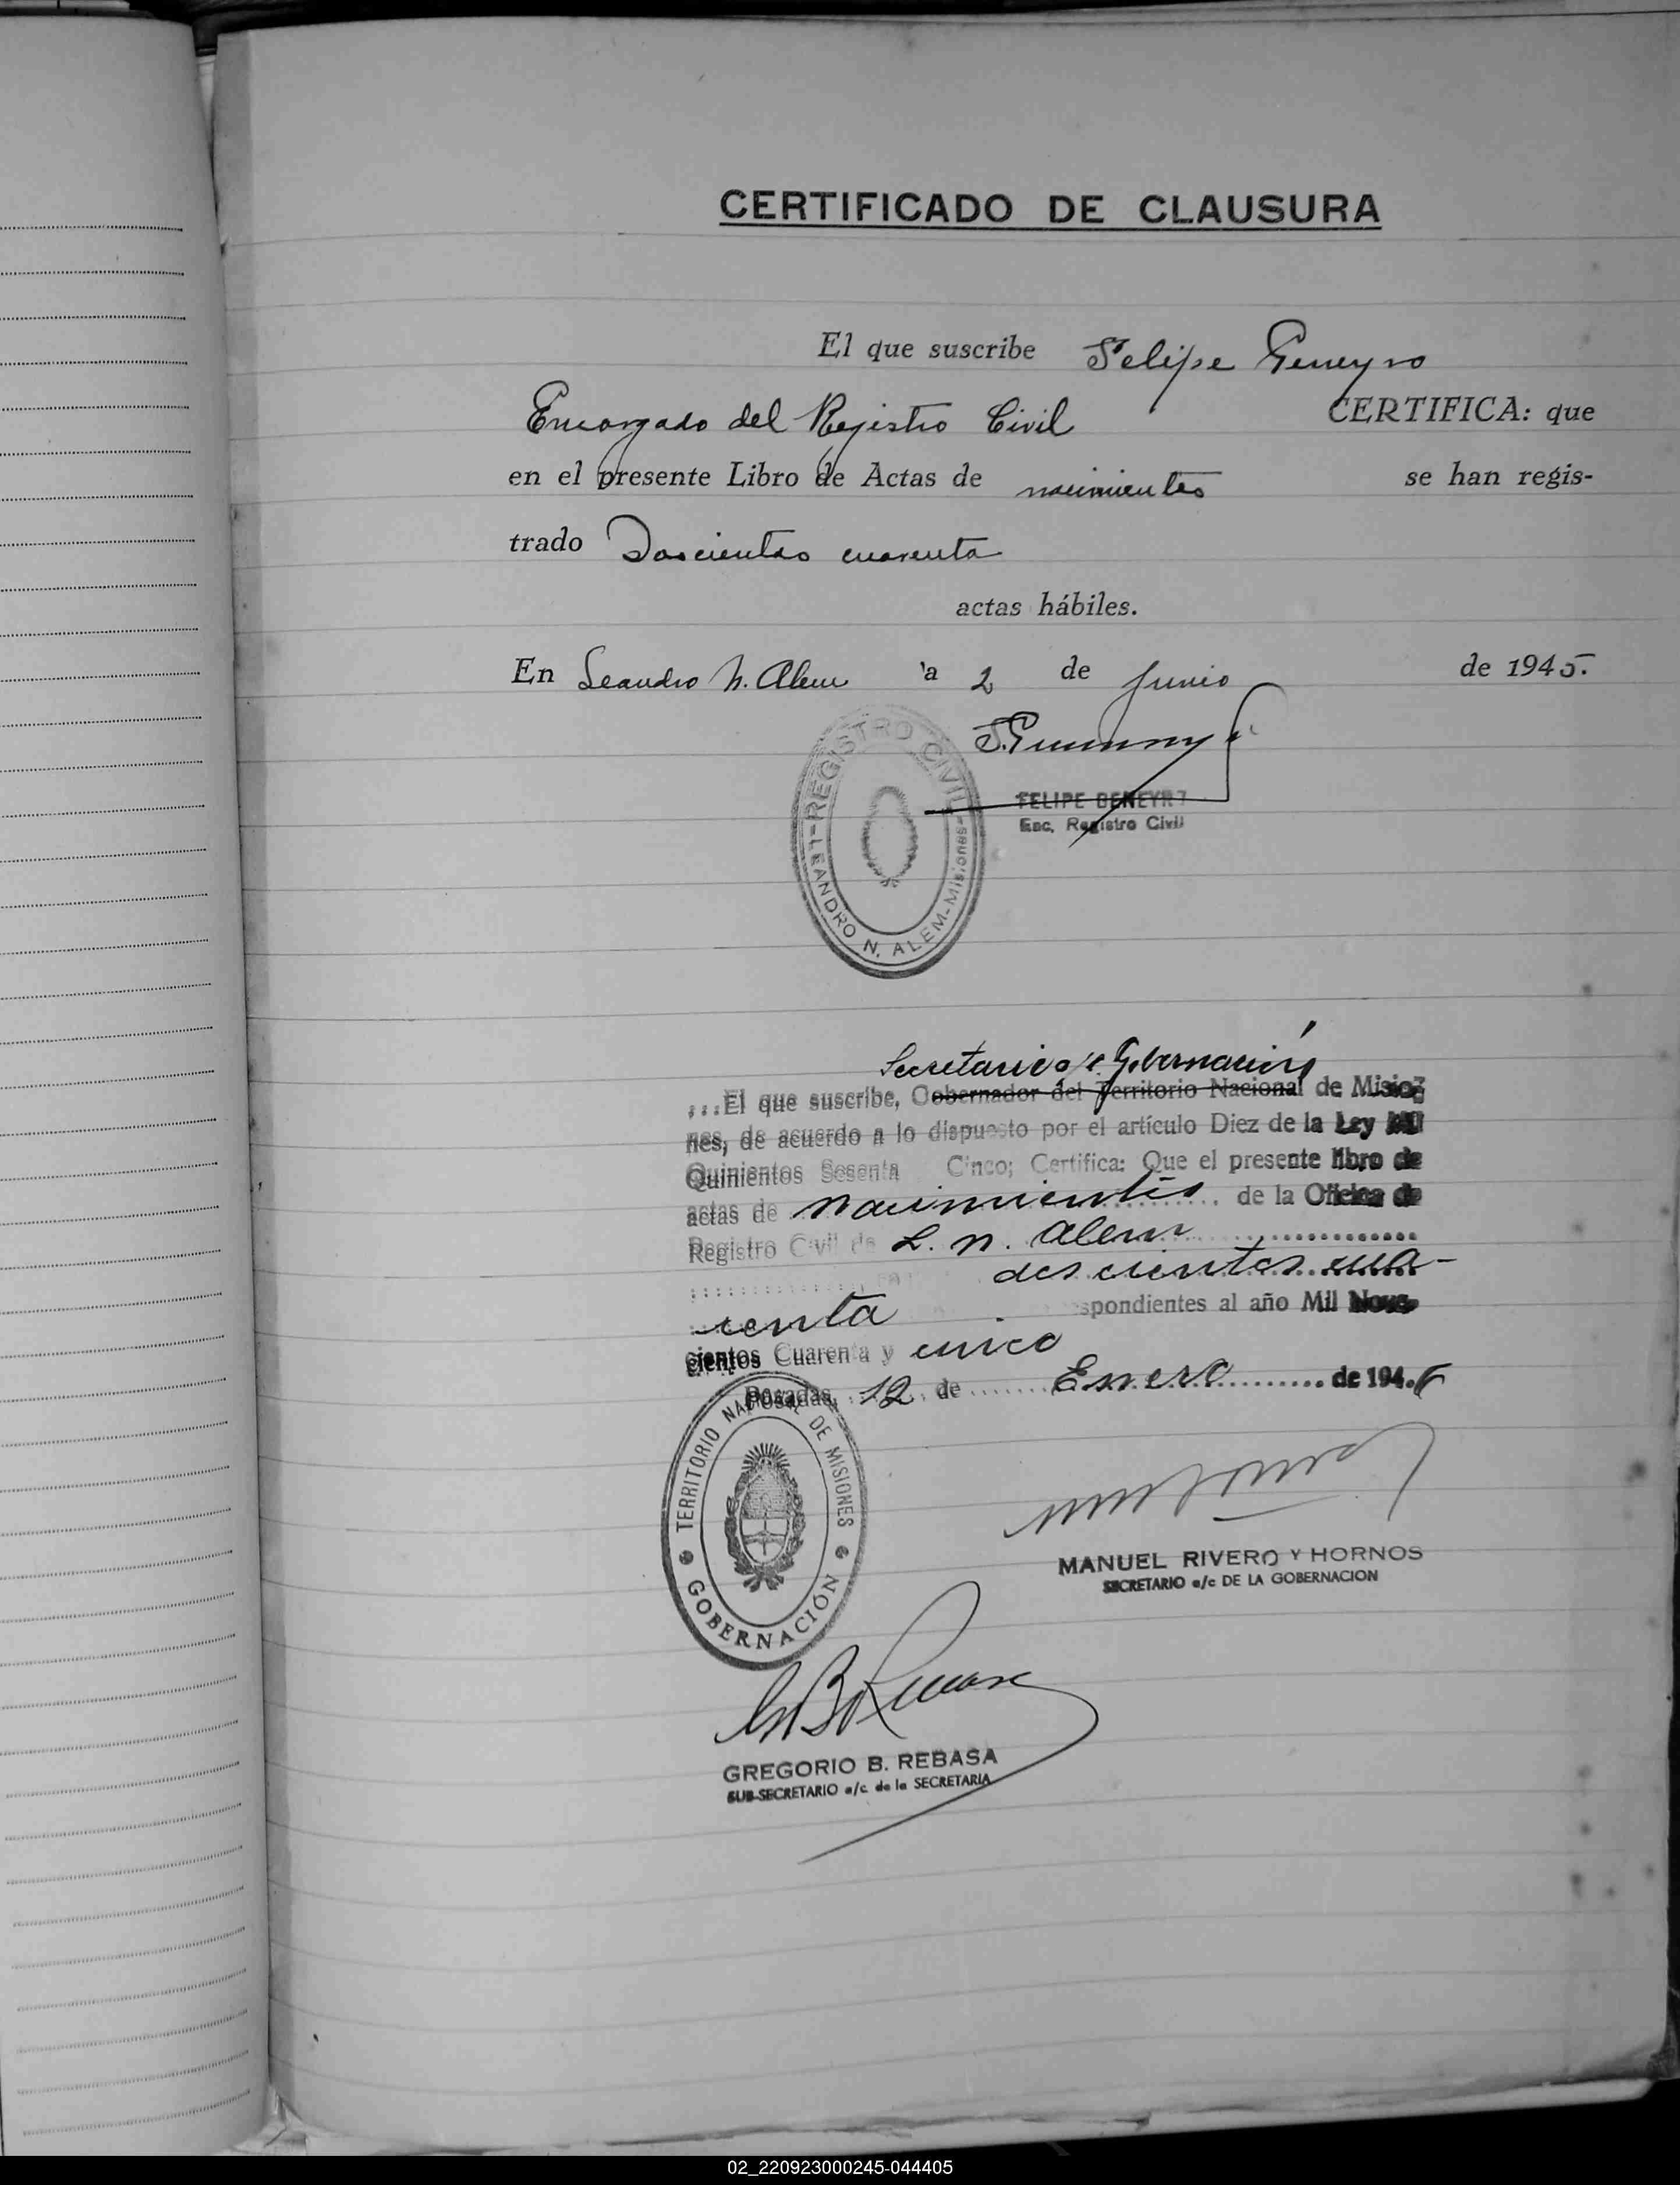 CERTIFICADO DE CLAUSURA
El que suscribe Felipe Geneyro
Encargado del Registro Civil CERTIFICA: que
en el presente Libro de Actas de nacimientos se han regis-
trado Doscientas cuarenta
actas hábiles.
En Leandro N. Alem a 2 de Junio de 1945.
REGISTRO CIVIL
LEANDRO N. ALEM - Misiones
FELIPE GENEYRO
Enc. Registro Civil
Secretario de Gobernación
...El que suscribe, Gobernador del Territorio Nacional de Misio-
nes, de acuerdo a lo dispuesto por el artículo Diez de la Ley Mil
Quinientos Sesenta Cinco; Certifica: Que el presente libro de
actas de nacimientos de la Oficina de
Registro Civil de L. N. Alem
doscientos cua-
renta spondientes al año Mil Nove-
cientos Cuarenta y cinco
Posadas, 12 de Enero de 1946
TERRITORIO NACIONAL DE MISIONES
GOBERNACIÓN
MANUEL RIVERO Y HORNOS
SECRETARIO a/c DE LA GOBERNACION
GREGORIO B. REBASA
SUB-SECRETARIO a/c. de la SECRETARIA
02_220923000245-044405